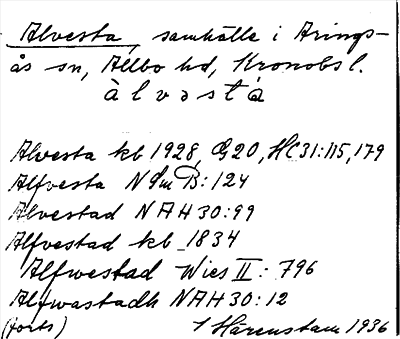 Alvesta, samhälle i Arings-
ås sn, Allbo hd, Kronobs l.
àlvəstà
Alvesta kb 1928, G20, HC31:115,179
Alfvesta NSmB:124
Alvestad NAH30:99
Alfvestad kb 1834
Alfwestad Wies II: 796
Alfwastadh NAH30:12
(forts) / Härenstam 1936